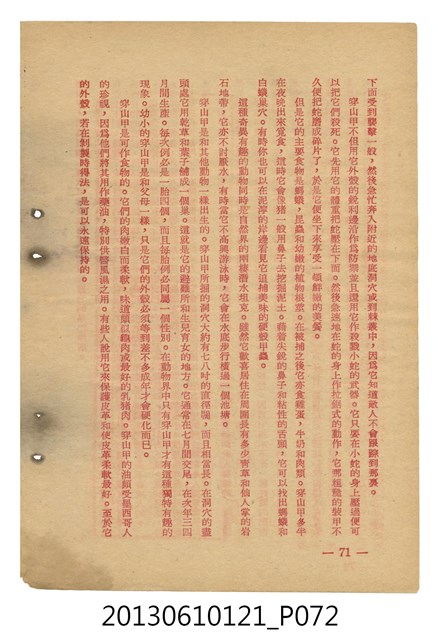 下面受到襲擊一般，然後急忙弄入附近的地底洞穴或到棘叢中，因爲它知道敵人不會跟蹤到那裏。
穿山甲不但用它外殼的銳利邊沿作爲防禦並且還用它作殺戮小蛇的武器。它只要在小蛇的身上壓過便可
以把它們殺死。它先用它的體重把蛇壓在下面。然後急速地在蛇的身上作拉鋸式的動作，它那粗糙的裝甲不
久便把蛇磨成碎片了，於是它便坐下來享受一頓鮮嫩的美餐。
但是它的主要食物是螞蟻，昆蟲和幼嫩的植物根莖。在被捕之後它亦食雞蛋，牛奶和肉類。穿山甲多半
在夜晚出來覓食，這時它會像豬一般用鼻子去挖掘泥土。藉着尖銳的鼻子和粘性的舌頭，它可以找出螞蟻和
白蟻巢穴。有時你也可以在泥濘的岸邊看見它追捕美味的硬殼甲蟲。
這種奇異有趣的動物同時是自然界的兩棲潛水坦克。雖然它歡喜居住在周圍長有多少青草和仙人掌的岩
石地帶，它亦不討厭水，有時當它不高興游泳時，它會在水底步行橫過一個池塘。
穿山甲是和其他動物一樣出生的。穿山甲所掘的洞穴大約有七八吋的直徑闊，而且相當長。在洞穴的盡
頭處它用乾草和葉子鋪成一個巢。這就是它的避難所和生兒育女的地方。它通常在七月間交尾，在次年三四
月間生產。每次例必是一胎四個，而且每胎例必同屬一個性別。在動物界中只有穿山甲才有這種獨特有趣的
現象。幼小的穿山甲是和父母一樣，只是它們的外殼必須等到差不多成年才會硬化而已。
穿山甲是可作食物的。它們的肉嫩白而柔軟，味道類似雞肉或最好的乳豬肉。穿山甲的油頗受墨西哥人
的珍視，因爲他們將其用作藥油，特別供醫風濕之用。有些人說用它來保護皮革和使皮革柔軟最好。至於它
的外殼，若在制製時得法，是可以永遠保持的。
— 71 —
20130610121_P072